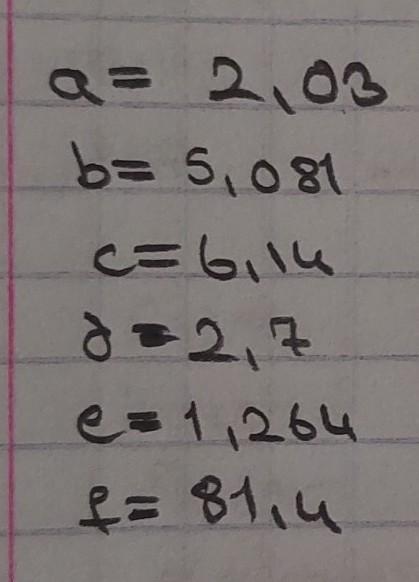 a= 2,03
b= 5,081
c=6,14
d=2,7
e=1,264
f= 81,4